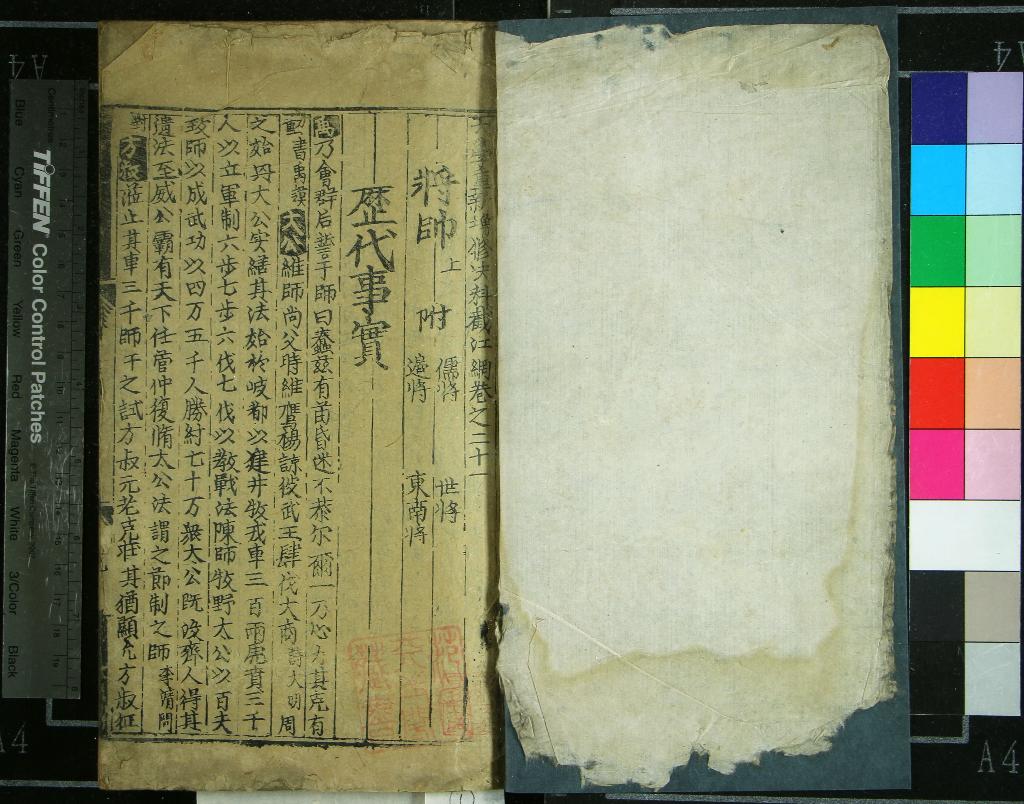 增修决科截江網卷之二十一
將帥上 附 儒將 世將
邊將 東南將
歷代事實
禹乃會群后誓于師曰蠢茲有苗昏迷不恭尔爾一乃心力其克有
勳書禹謨太公維師尚父時維鷹揚諒彼武王肆伐大商詩大明周
之始興大公实繕其法始於岐都以建井牧戎車三百兩虎賁三千
人以立軍制六步七步六伐七伐以教戰法陳師牧野太公以百夫
致師以成武功以四万五千人勝紂七十万衆太公既没齊人得其
遺法至威公霸有天下任管仲復脩太公法謂之節制之師李靖問
對方叔涖止其車三千師干之試方叔元老克壯其猶顯允方叔征
TIFFEN Color Control Patches
Blue Cyan Green Yellow Red Magenta White 3/Color Black
Centimetres
A4
A4
A4
A4